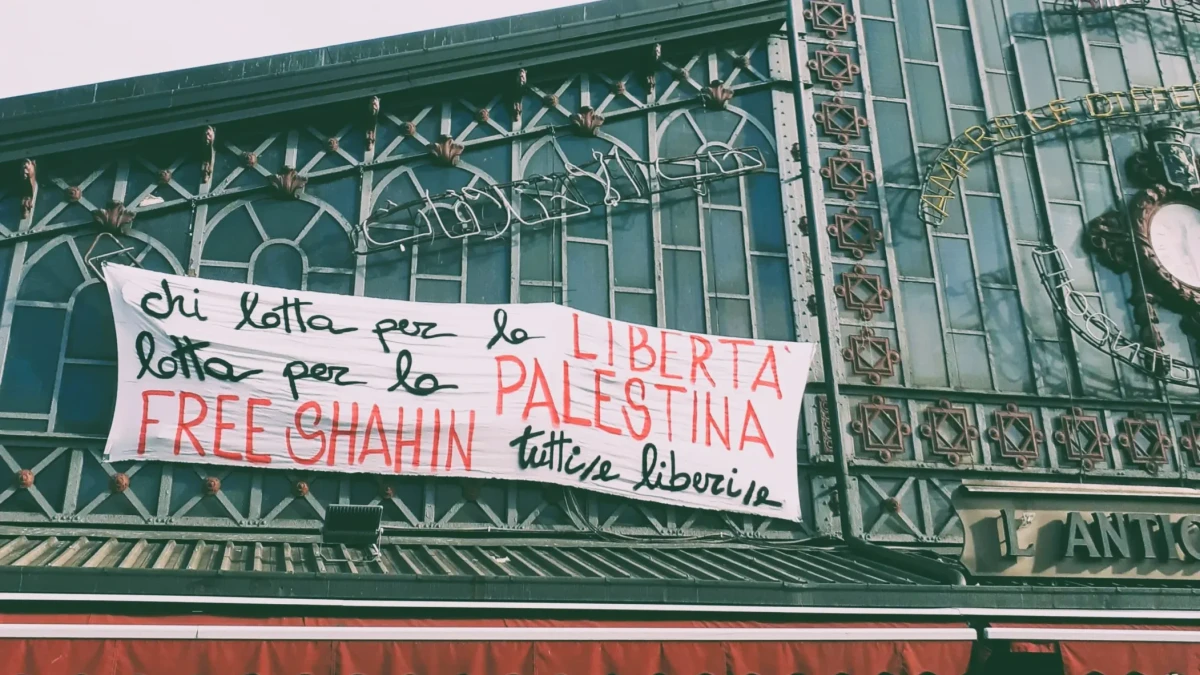 chi lotta per la LIBERTÀ
lotta per la PALESTINA
FREE SHAHIN tutti/e liberi/e
AMARE LE DIFFE
L'ANTIC